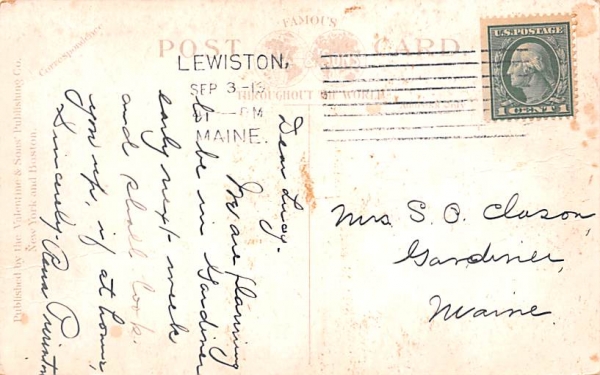 FAMOUS
POST CARD
THROUGHOUT THE WORLD
Correspondence
LEWISTON,
SEP 3-12
PM
MAINE.
U.S. POSTAGE
1 CENT 1
Dear Lucy-
We are planning
to be in Gardiner
early next week
and shall look
you up, if at home,
Sincerely-
Mrs. S. O. Clason,
Gardiner,
Maine.
Published by the Valentine & Sons' Publishing Co.
New York and Boston.